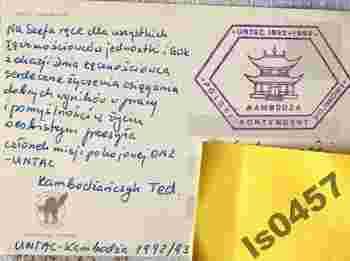 Na Szefa ręce dla wszystkich
łącznościowców jednostki i GOK
z okazji dnia łącznościowca
serdeczne życzenia osiągania
dobrych wyników w pracy
i pomyślności w życiu
osobistym przesyła
członek misji pokojowej ONZ
-UNTAC
Kambodżańczyk Ted.
UNTAC-Kambodża 1992/93
UNTAC 1992-1993
POLSKI
KAMBODŻA
KONTYNGENT
Is0457